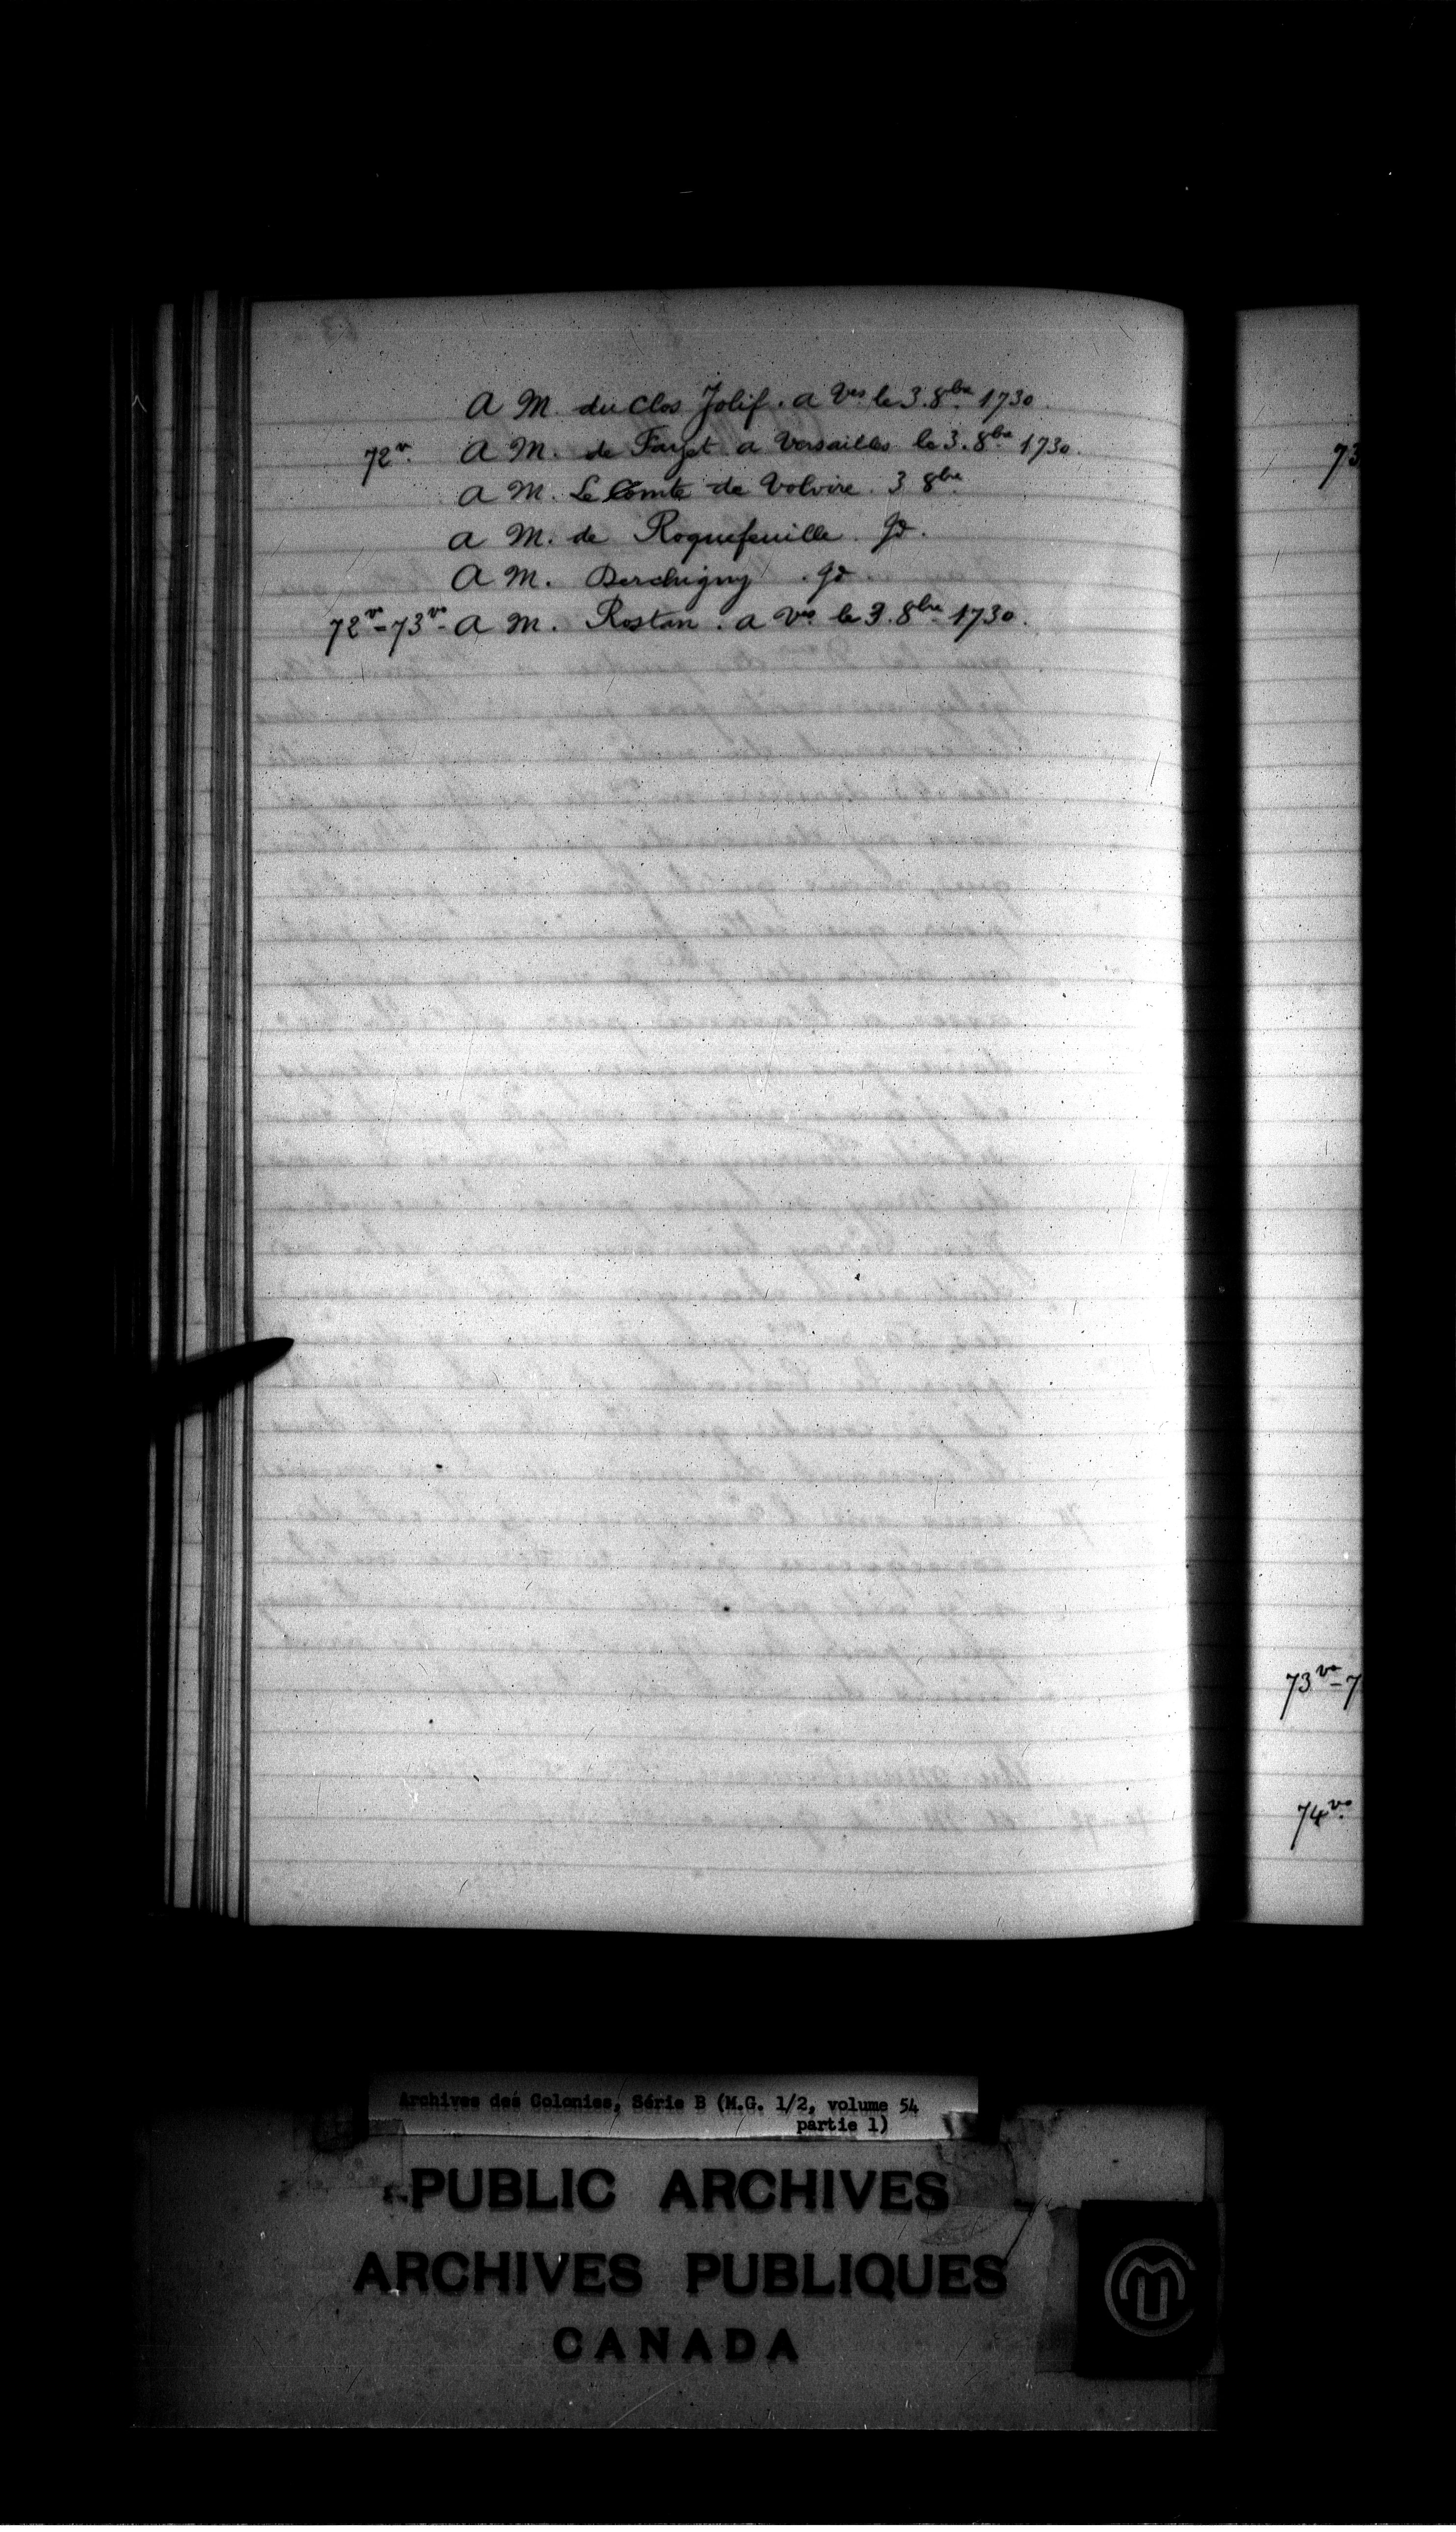 A M. du Clos Jolif. a Ves le 3. 8bre 1730.
72v. A M. de Farget a Versailles le 3. 8bre 1730.
A M. Le Comte de Volvire. 3 8bre
A M. de Roquefeuille. Id.
A M. Derchigny. Id.
72vo-73vo- A M. Rostan. a Ves le 3. 8bre 1730.
73
73vo-7
74vo.
Archives des Colonies, Série B (M.G. 1/2, volume 54
partie 1)
PUBLIC ARCHIVES
ARCHIVES PUBLIQUES
CANADA